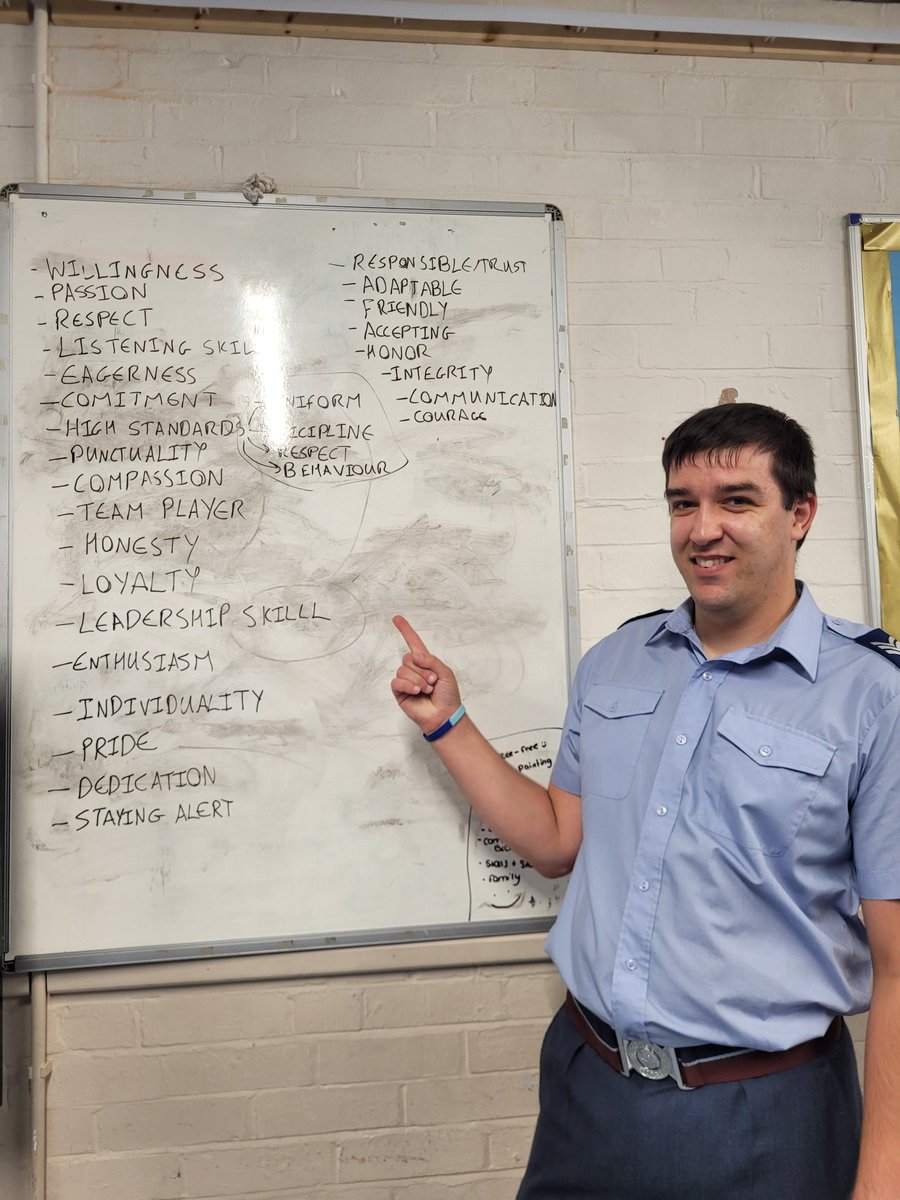 - WILLINGNESS
- PASSION
- RESPECT
- LISTENING SKIL
- EAGERNESS
- COMITMENT
- HIGH STANDARDS
- PUNCTUALITY
- COMPASSION
- TEAM PLAYER
- HONESTY
- LOYALTY
- LEADERSHIP SKILLL
- ENTHUSIASM
- INDIVIDUALITY
- PRIDE
- DEDICATION
- STAYING ALERT
NIFORM
CIPLINE
RESPECT
BEHAVIOUR
- RESPONSIBLE/TRUST
- ADAPTABLE
- FRIENDLY
- ACCEPTING
- HONOR
- INTEGRITY
- COMMUNICATION
- COURAGE
painting
• skills +
• family